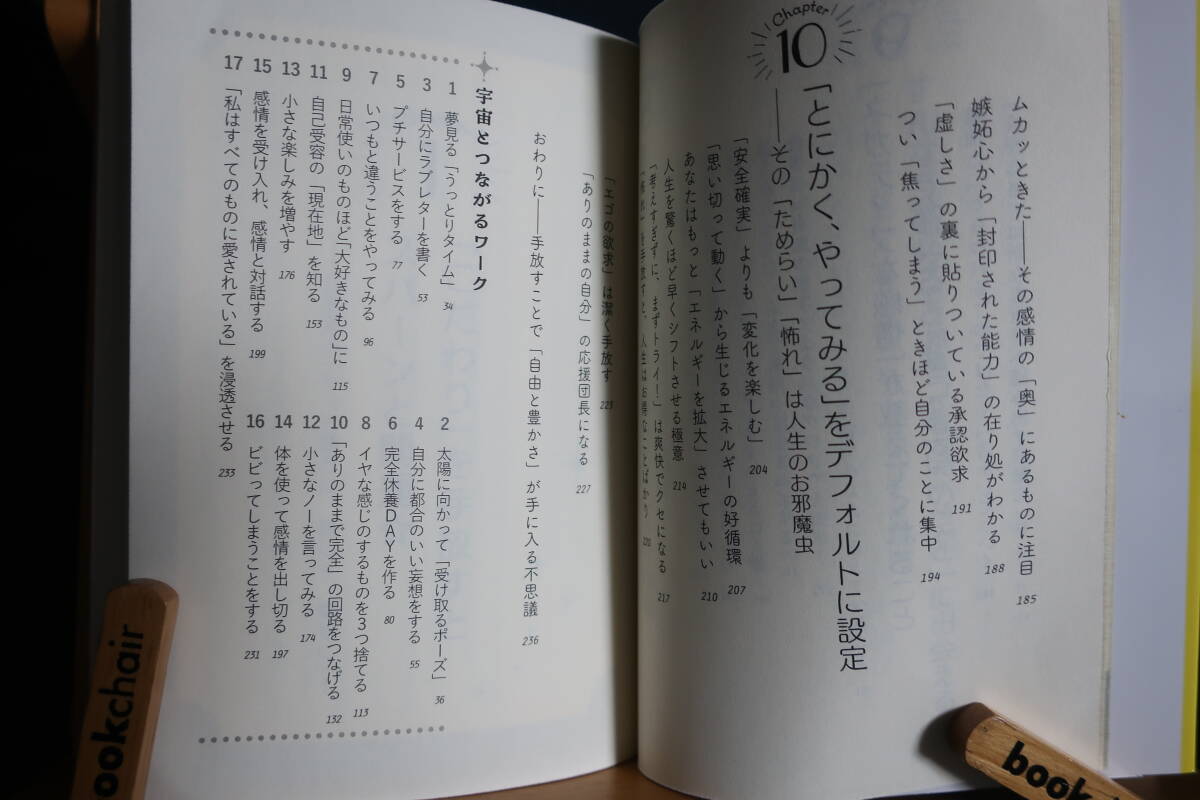 ムカッときた――その感情の「奥」にあるものに注目 185
嫉妬心から「封印された能力」の在り処がわかる 188
「虚しさ」の裏に貼りついている承認欲求 191
つい「焦ってしまう」ときほど自分のことに集中 194
Chapter 10
「とにかく、やってみる」をデフォルトに設定
――その「ためらい」「怖れ」は人生のお邪魔虫
「安全確実」よりも「変化を楽しむ」 204
「思い切って動く」から生じるエネルギーの好循環 207
あなたはもっと「エネルギーを拡大」させてもいい 210
人生を驚くほど早くシフトさせる極意 214
「考えすぎずに、まずトライ!」は爽快でクセになる 217
を手放すと、人生はお得なことばかり
「エゴの欲求」は潔く手放す 223
「ありのままの自分」の応援団長になる 227
おわりに――手放すことで「自由と豊かさ」が手に入る不思議 236
宇宙とつながるワーク
1 夢見る「うっとりタイム」 34
2 太陽に向かって「受け取るポーズ」 36
3 自分にラブレターを書く 53
4 自分に都合のいい妄想をする 55
5 プチサービスをする 77
6 完全休養DAYを作る 80
7 いつもと違うことをやってみる 96
8 イヤな感じのするものを3つ捨てる 113
9 日常使いのものほど「大好きなもの」に 115
10 「ありのままで完全」の回路をつなげる 132
11 自己受容の「現在地」を知る 153
12 小さなノーを言ってみる 174
13 小さな楽しみを増やす 176
14 体を使って感情を出し切る 197
15 感情を受け入れ、感情と対話する 199
16 ビビってしまうことをする 231
17 「私はすべてのものに愛されている」を浸透させる 233
ookchair
book